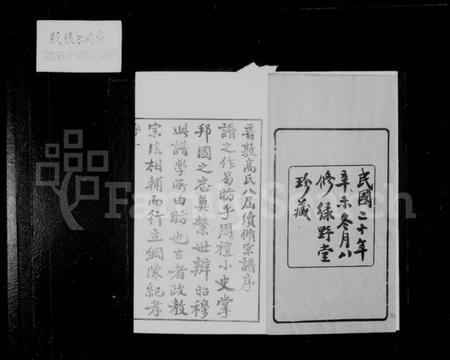 紙張不同色
民國二十年
辛未冬月八
修綠野堂
珍藏
敦高氏八届續脩宗譜序
譜之作曷昉乎周禮小史掌
邦國之志奠繫世辨昭穆
此譜學所由昉也古者政教
宗法相輔而行立綱陳紀孝
FamilySearch